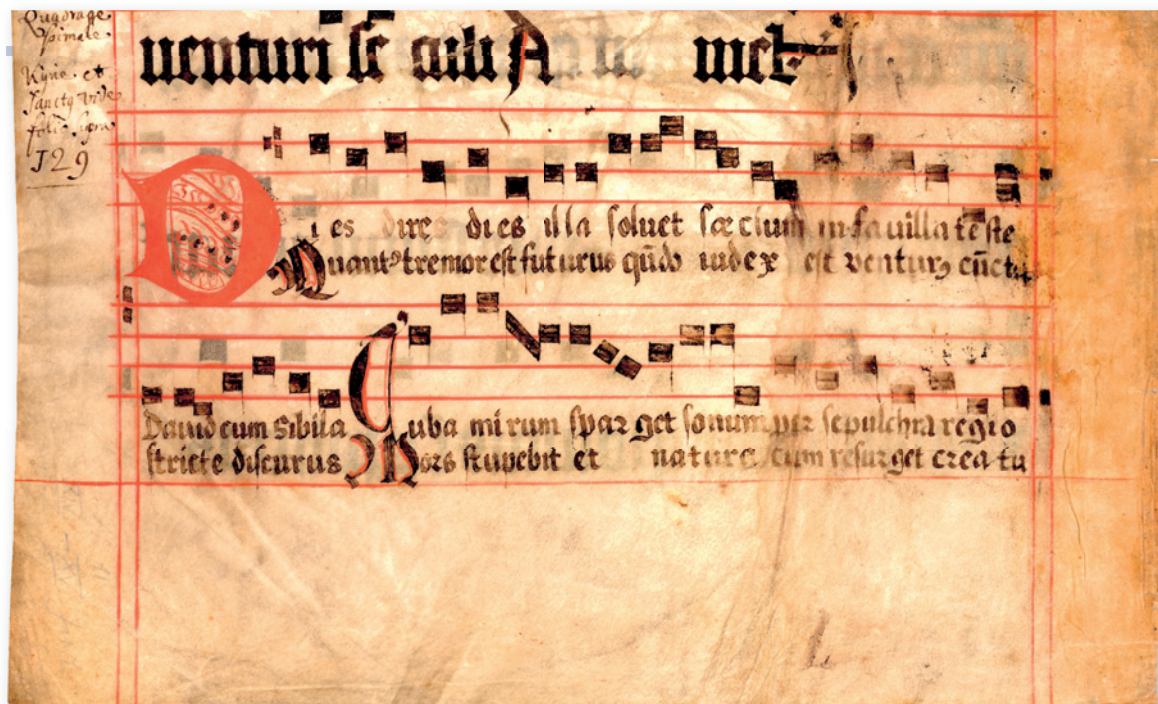 Quadrage
simale
Kyrie et
Sanctq vide
folio
129
uenturi se culi A me
Dies dire dies illa soluet sæclum in fauilla teste
Quantꝰ tremor est futurus qn̄do iudex est venturꝰ cūcta
Dauid cum Sibila Tuba mirum sparget sonum per sepulchra regio
stricte discurus Mors stupebit et nature cum resurget creatu